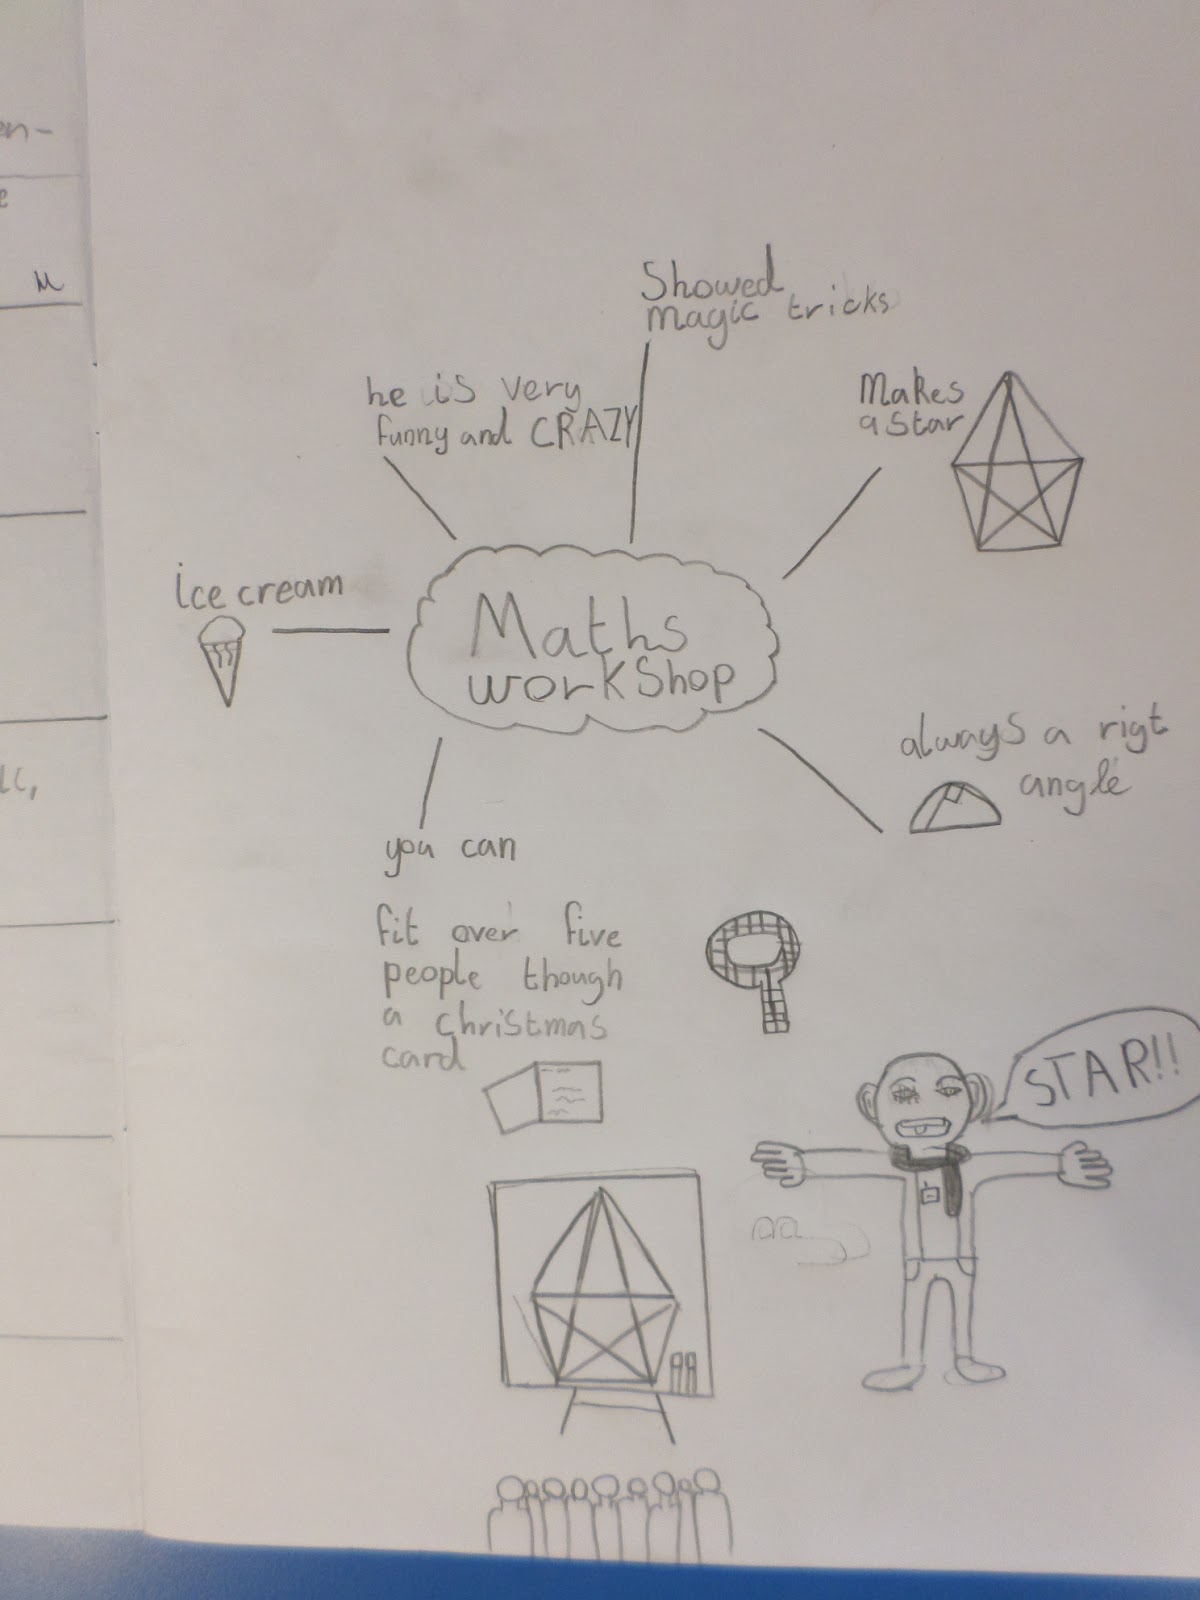 en-
e
M
Showed
magic tricks
he is very
funny and CRAZY
Makes
a star
ice cream
Maths
workshop
always a rigt
angle
you can
fit over five
people though
a christmas
card
STAR!!